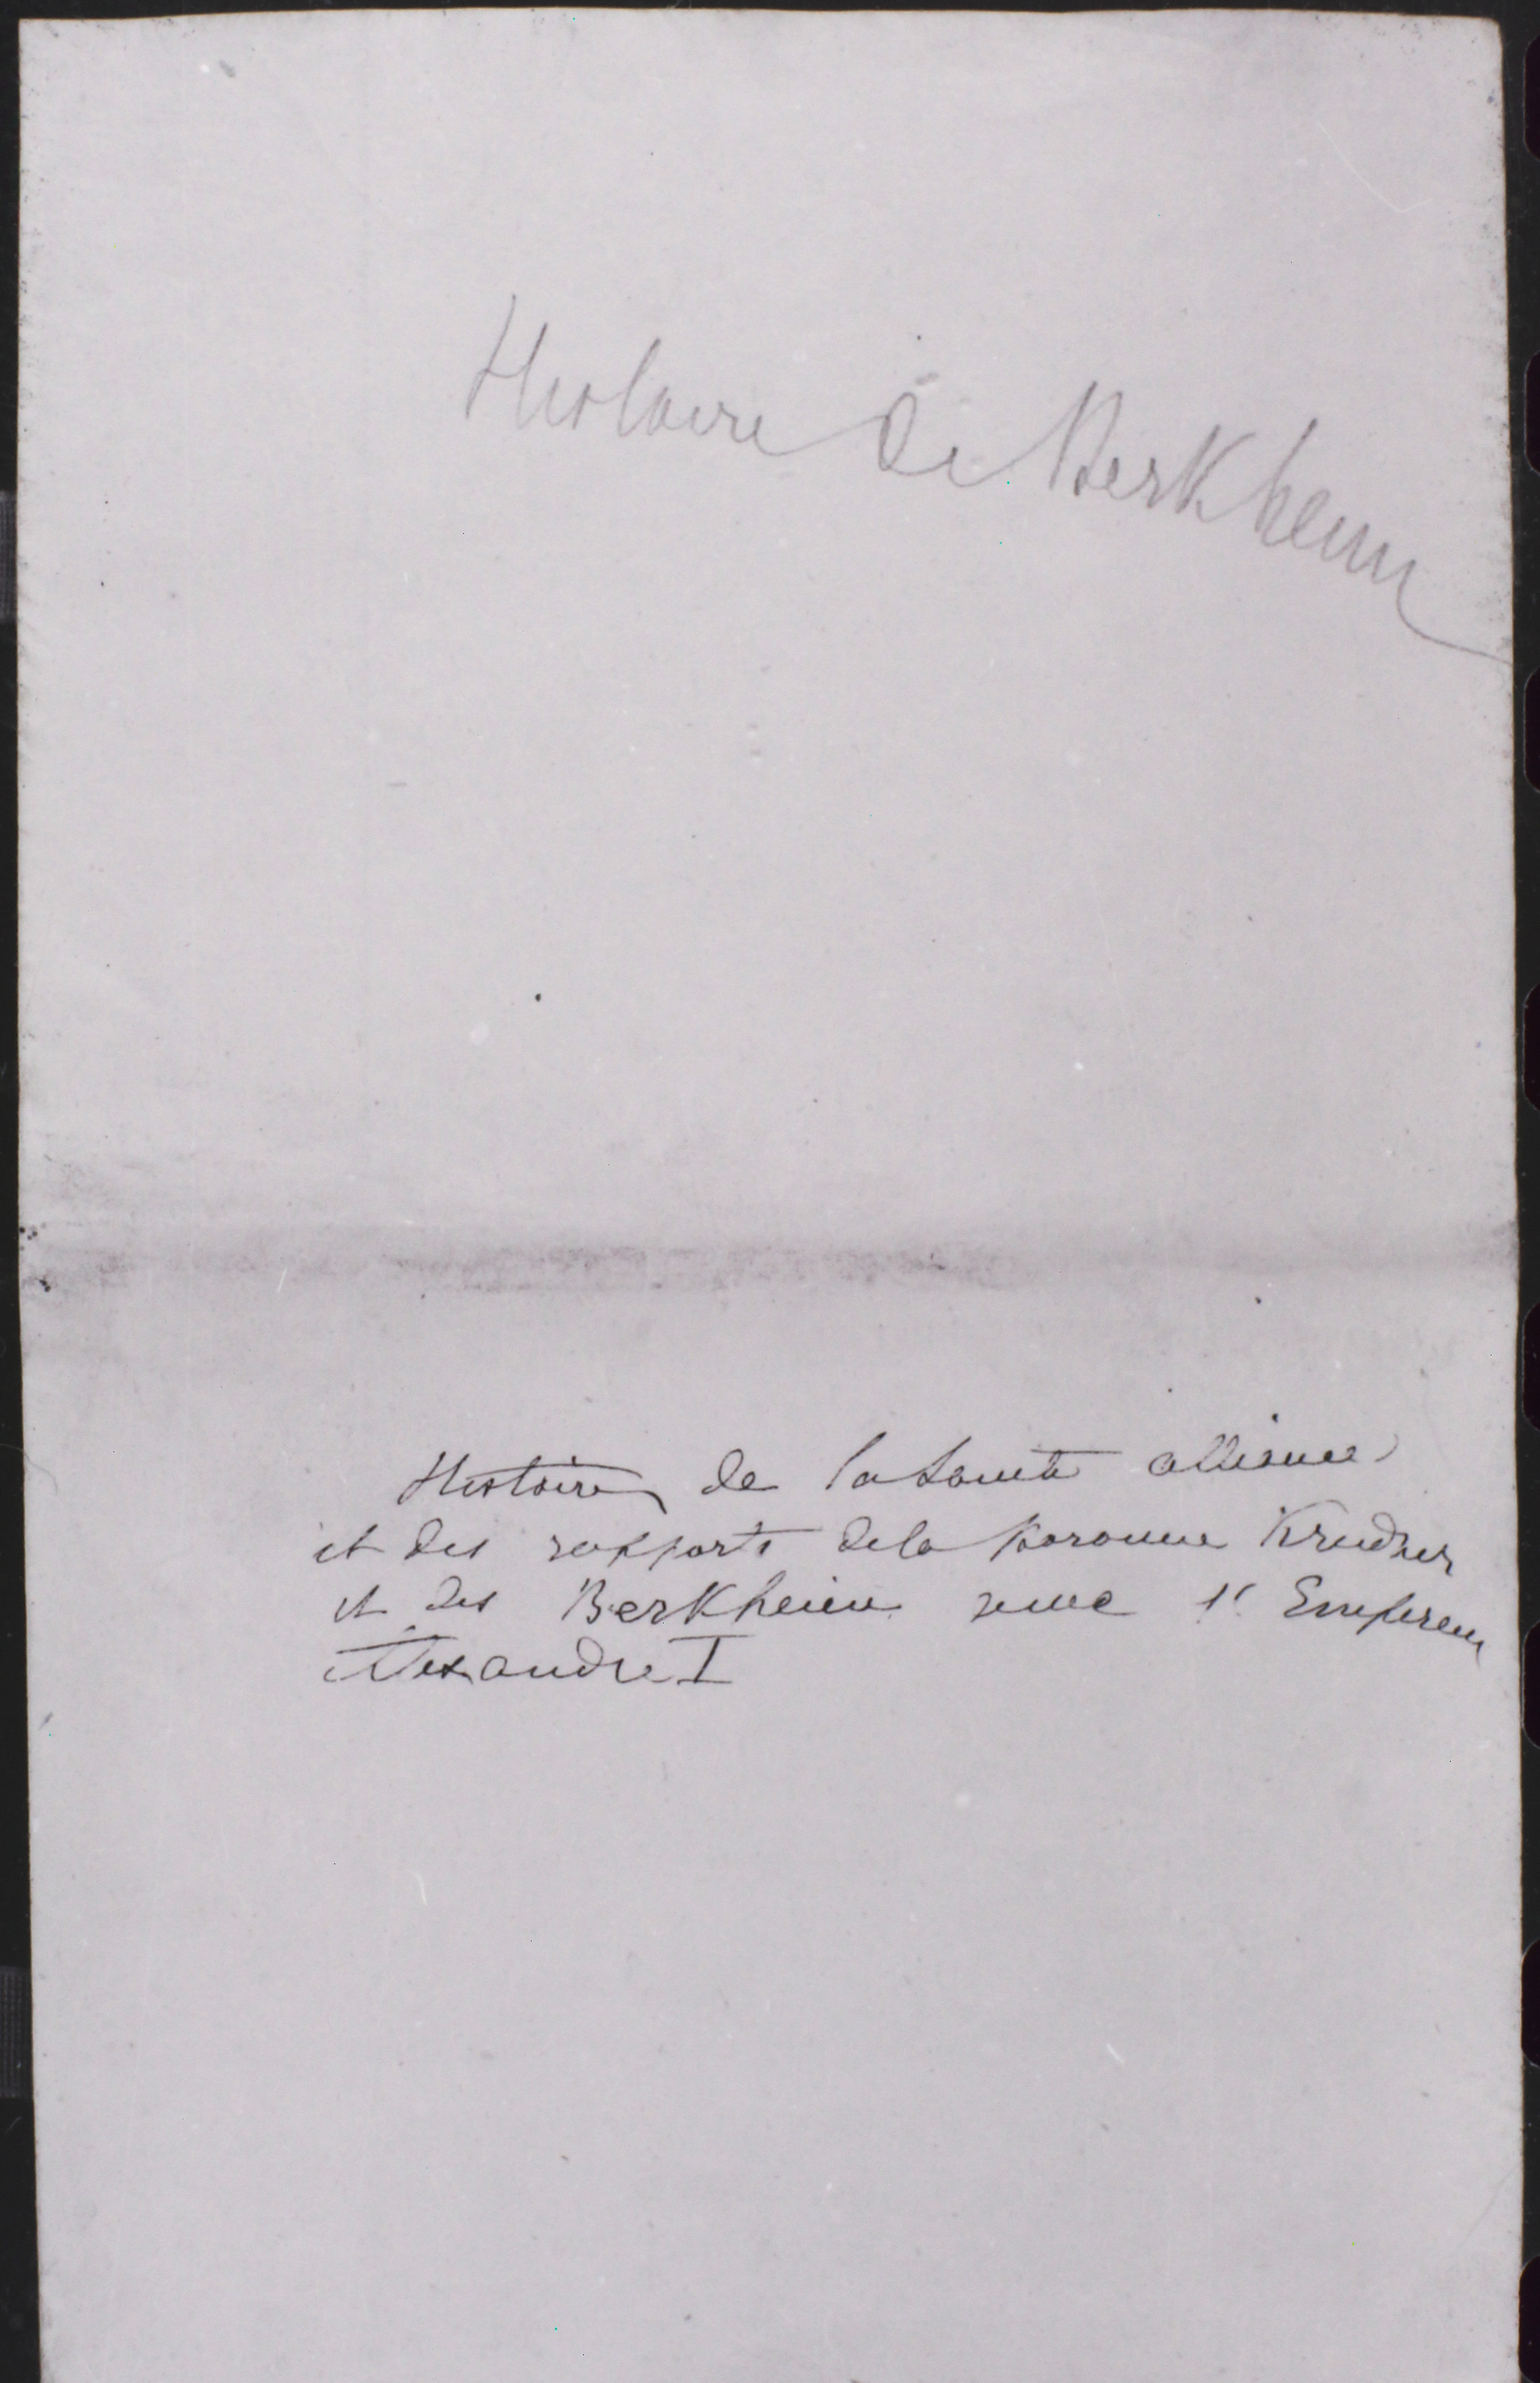 Histoire de Berkheim
Histoire de la Sainte alliance
et des rapports de la baronne Krudner
et des Berkheim avec l'Empereur
Alexandre I